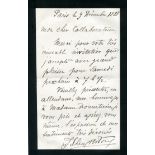 Paris le 9 Décembre 1888
Mon cher Collaborateur
Merci pour votre très
aimable invitation que
j'accepte avec grand
plaisir pour Samedi
prochain à 7 h ½
Veuillez présenter, en
attendant, mes hommages
à Madame
vous prie et agréez vous
même l'expression de mes
sentiments